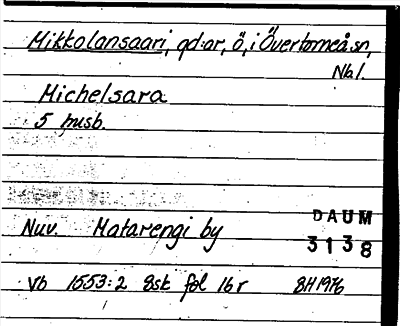 Mikkolansaari, gd:ar, ö, i Övertorneå sn,
Nbl.
Michelsara
5 husb.
Nuv. Matarengi by
DAUM
3138
Vb 1553:2 8sk fol 16r BH 1976